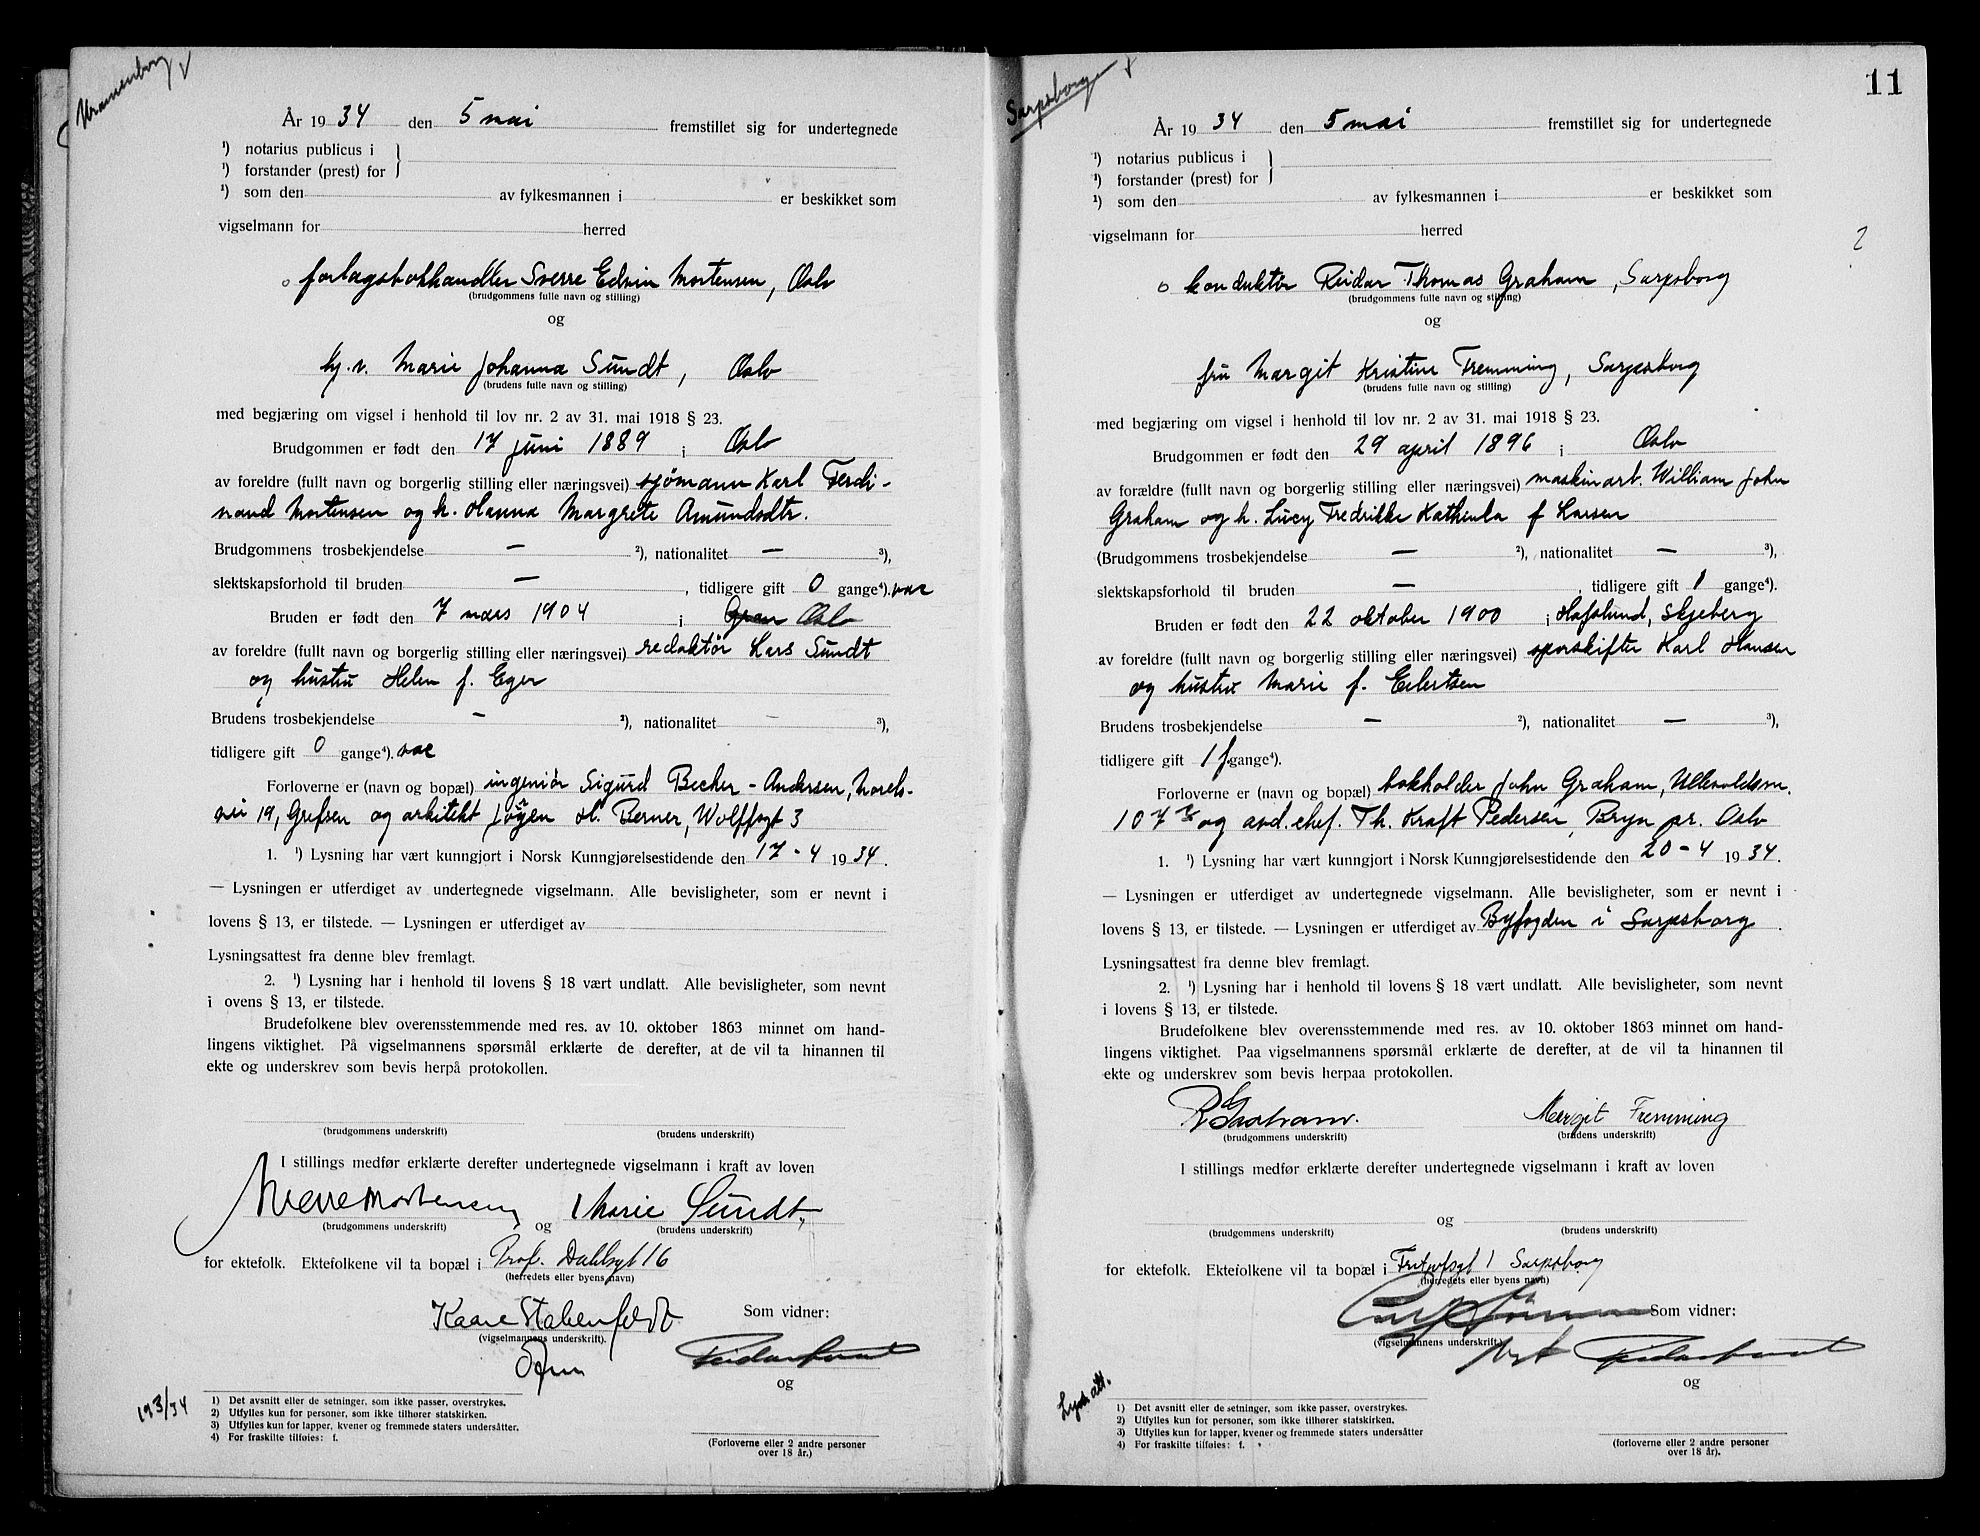 Uranienborg
År 1934 den 5 mai fremstillet sig for undertegnede
¹) notarius publicus i
¹) forstander (prest) for
¹) som den av fylkesmannen i er beskikket som
vigselmann for herred
forlagsbokhandler Sverre Edvin Mortensen, Oslo
(brudgommens fulle navn og stilling)
og
hj.v. Marie Johanna Sundt, Oslo
(brudens fulle navn og stilling)
med begjæring om vigsel i henhold til lov nr. 2 av 31. mai 1918 § 23.
Brudgommen er født den 17 juni 1889 i Oslo
av foreldre (fullt navn og borgerlig stilling eller næringsvei) sjømann Karl Ferdi-
nand Mortensen og h. Hanna Margrete Amundsdtr.
Brudgommens trosbekjendelse — ²), nationalitet — ³),
slektskapsforhold til bruden — , tidligere gift 0 gange⁴).
Bruden er født den 7 mars 1904 i Gran Oslo
av foreldre (fullt navn og borgerlig stilling eller næringsvei) redaktør Lars Sundt
og hustru Helen f. Eger
Brudens trosbekjendelse — ²), nationalitet — ³),
tidligere gift 0 gange⁴).
Forloverne er (navn og bopæl) ingeniør Sigurd Becher-Andersen,
vei 19, Grefsen og arkitekt Jørgen H. Berner, Wolffsgt 3
1. ¹) Lysning har vært kunngjort i Norsk Kunngjørelsestidende den 17-4 1934.
— Lysningen er utferdiget av undertegnede vigselmann. Alle bevisligheter, som er nevnt i
lovens § 13, er tilstede. — Lysningen er utferdiget av
Lysningsattest fra denne blev fremlagt.
2. ¹) Lysning har i henhold til lovens § 18 vært undlatt. Alle bevisligheter, som nevnt
i ovens § 13, er tilstede.
Brudefolkene blev overensstemmende med res. av 10. oktober 1863 minnet om hand-
lingens viktighet. På vigselmannens spørsmål erklærte de derefter, at de vil ta hinannen til
ekte og underskrev som bevis herpå protokollen.
(brudgommens underskrift) (brudens underskrift)
I stillings medfør erklærte derefter undertegnede vigselmann i kraft av loven
Sverre Mortensen og Marie Sundt
(brudgommens underskrift) (brudens underskrift)
for ektefolk. Ektefolkene vil ta bopæl i Prof. Dahlsgt 16
(herredets eller byens navn)
Kaare Stabenfeldt Som vidner:
(vigselmannens underskrift).
og
193/34
1) Det avsnitt eller de setninger, som ikke passer, overstrykes.
2) Utfylles kun for personer, som ikke tilhører statskirken.
3) Utfylles kun for lapper, kvener og fremmede staters undersåtter.
4) For fraskilte tilføies: f.
(Forloverne eller 2 andre personer
over 18 år.)
11
Sarpsborg
År 1934 den 5 mai fremstillet sig for undertegnede
¹) notarius publicus i
¹) forstander (prest) for
¹) som den av fylkesmannen i er beskikket som
vigselmann for herred
konduktør Reidar Thomas Graham, Sarpsborg
(brudgommens fulle navn og stilling)
og
fru Margit Kristine Fremming, Sarpsborg
(brudens fulle navn og stilling)
med begjæring om vigsel i henhold til lov nr. 2 av 31. mai 1918 § 23.
Brudgommen er født den 29 april 1896 i Oslo
av forældre (fullt navn og borgerlig stilling eller næringsvei) maskinarb. William John
Graham og h. Lucy Fredrikke Kathinka f Larsen
(Brudgommens trosbekjendelse — ²), nationalitet — ³),
slektskapsforhold til bruden — , tidligere gift 1 gange⁴).
Bruden er født den 22 oktober 1900 i Hafslund, Skjeberg
av foreldre (fullt navn og borgerlig stilling eller næringsvei) sporskifter Karl Hansen
og hustru Marie f. Eilertsen
Brudens trosbekjendelse — ²), nationalitet — ³),
tidligere gift 1 f. gange⁴).
Forloverne er (navn og bopæl) bokholder John Graham, Ullevoldsvn.
107 og avd.chef. Th. Kraft Pedersen, Bryn pr. Oslo
1. ¹) Lysning har vært kunngjort i Norsk Kunngjørelsestidende den 20-4 1934.
— Lysningen er utferdiget av undertegnede vigselmann. Alle bevisligheter, som er nevnt i
lovens § 13, er tilstede. — Lysningen er utferdiget av Byfogden i Sarpsborg.
Lysningsattest fra denne blev fremlagt.
2. ¹) Lysning har i henhold til lovens § 18 vært undlatt. Alle bevisligheter, som nevnt
i lovens § 13, er tilstede.
Brudefolkene blev overensstemmende med res. av 10. oktober 1863 minnet om hand-
lingens viktighet. Paa vigselmannens spørsmål erklærte de derefter, at de vil ta hinannen til
ekte og underskrev som bevis herpaa protokollen.
R Graham. Margit Fremming
(brudgommens underskrift) (brudens underskrift)
I stillings medfør erklærte derefter undertegnede vigselmann i kraft av loven
og
(brudgommens underskrift) (brudens underskrift)
for ektefolk. Ektefolkene vil ta bopæl i Fritjofsgt 1 Sarpsborg
(herredets eller byens navn)
Som vidner:
(vigselmannens underskrift)
og
Lysn.att.
1) Det avsnitt eller de setninger, som ikke passer, overstrykes.
2) Utfylles kun for personer, som ikke tilhører statskirken.
3) Utfylles kun for lapper, kvener og fremmede staters undersåtter
4) For fraskilte tilføies: f.
(forloverne eller 2 andre personer
over 18 år).